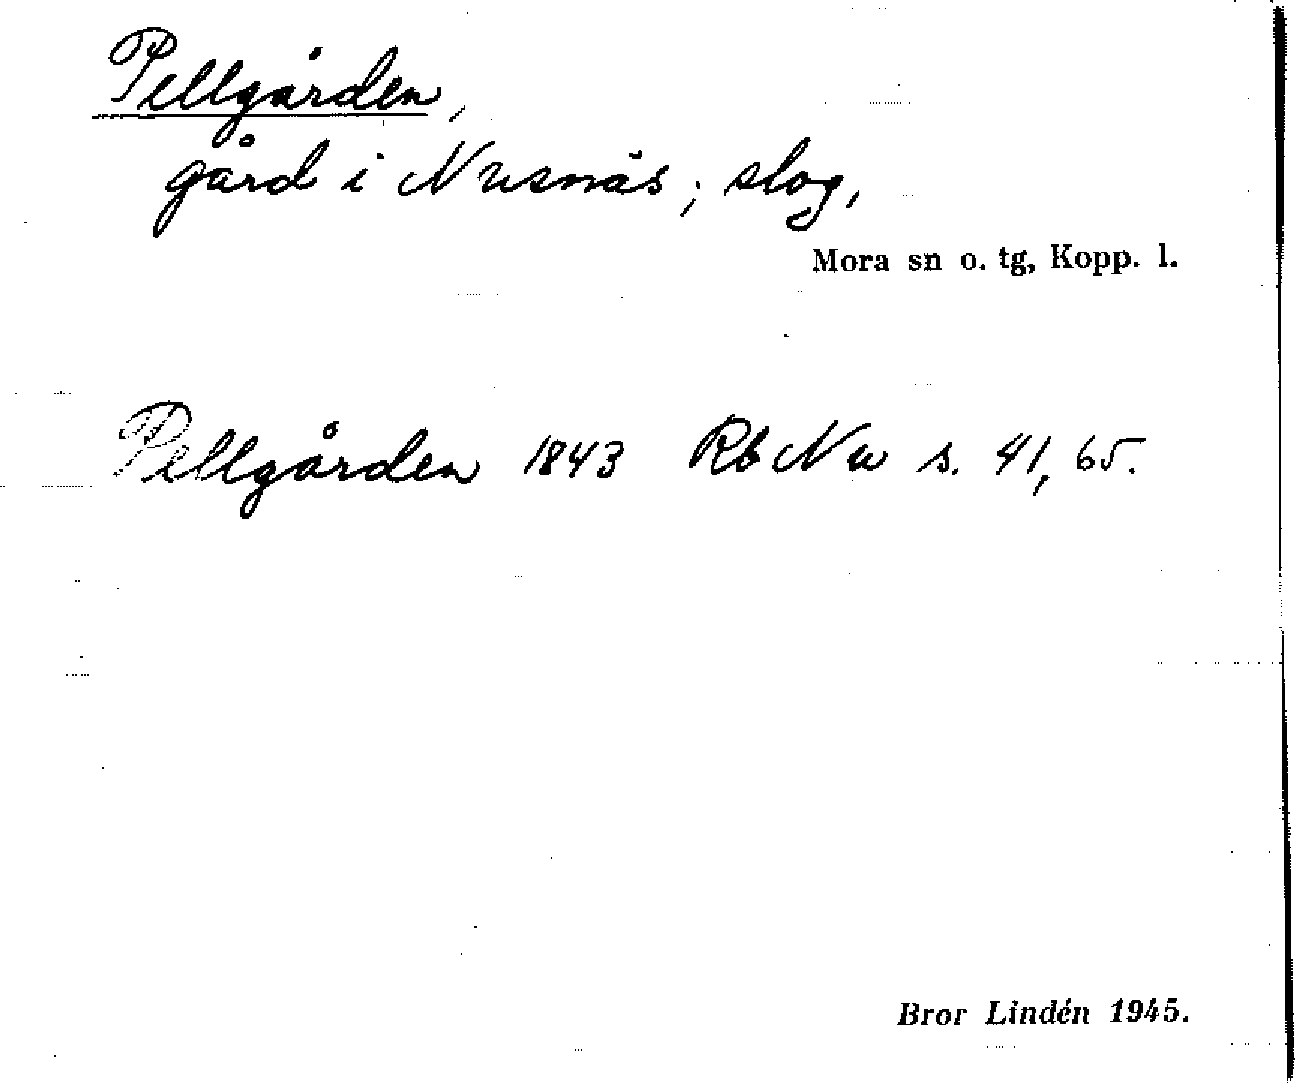 Pellgården,
gård i Nusnäs; slog,
Mora sn o. tg, Kopp. l.
Pellgården 1843 Rb Nu s. 41, 65.
Bror Lindén 1945.